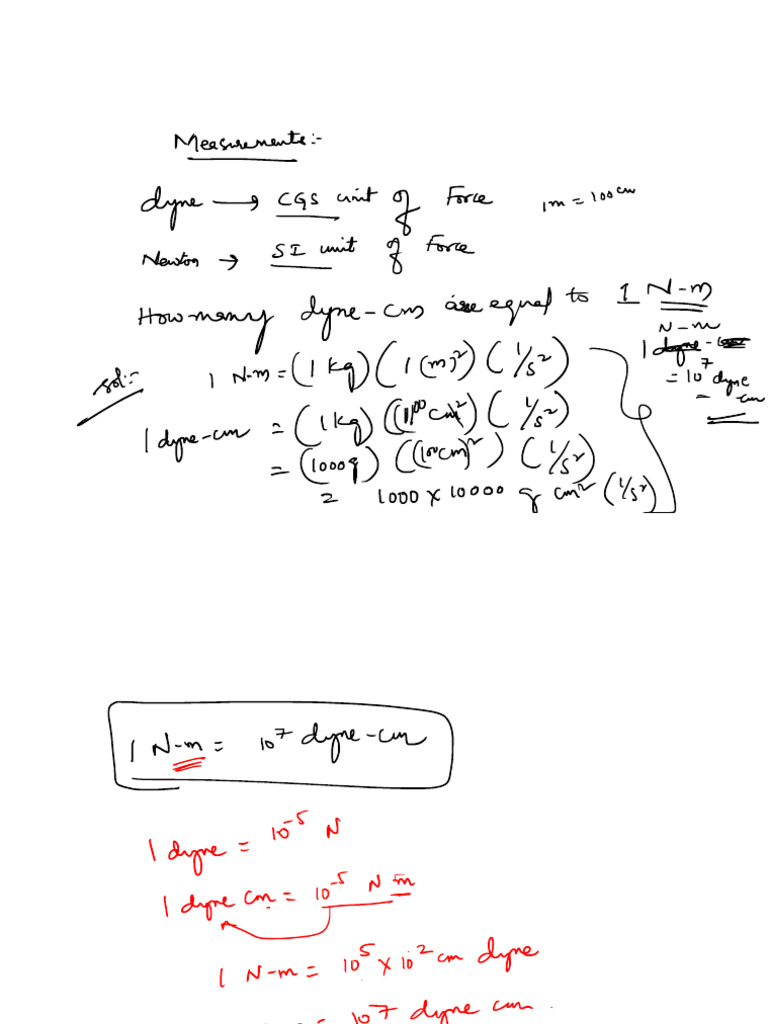 Measurements:-
dyne → CGS unit of Force 1m = 100cm
Newton → SI unit of Force
How many dyne-cms are equal to 1 N-m
N-m
1
= 10^7 dyne
cm
sol:- 1 N-m = (1 kg) (1 (m)^2) (1/s^2)
1 dyne-cm = (1 kg) ((100 cm)^2) (1/s^2)
= (1000g) ((100cm)^2) (1/s^2)
= 1000 x 10000 g cm^2 (1/s^2)
1 N-m = 10^7 dyne-cm
1 dyne = 10^-5 N
1 dyne cm = 10^-5 N m
1 N-m = 10^5 x 10^2 cm dyne
= 10^7 dyne cm.